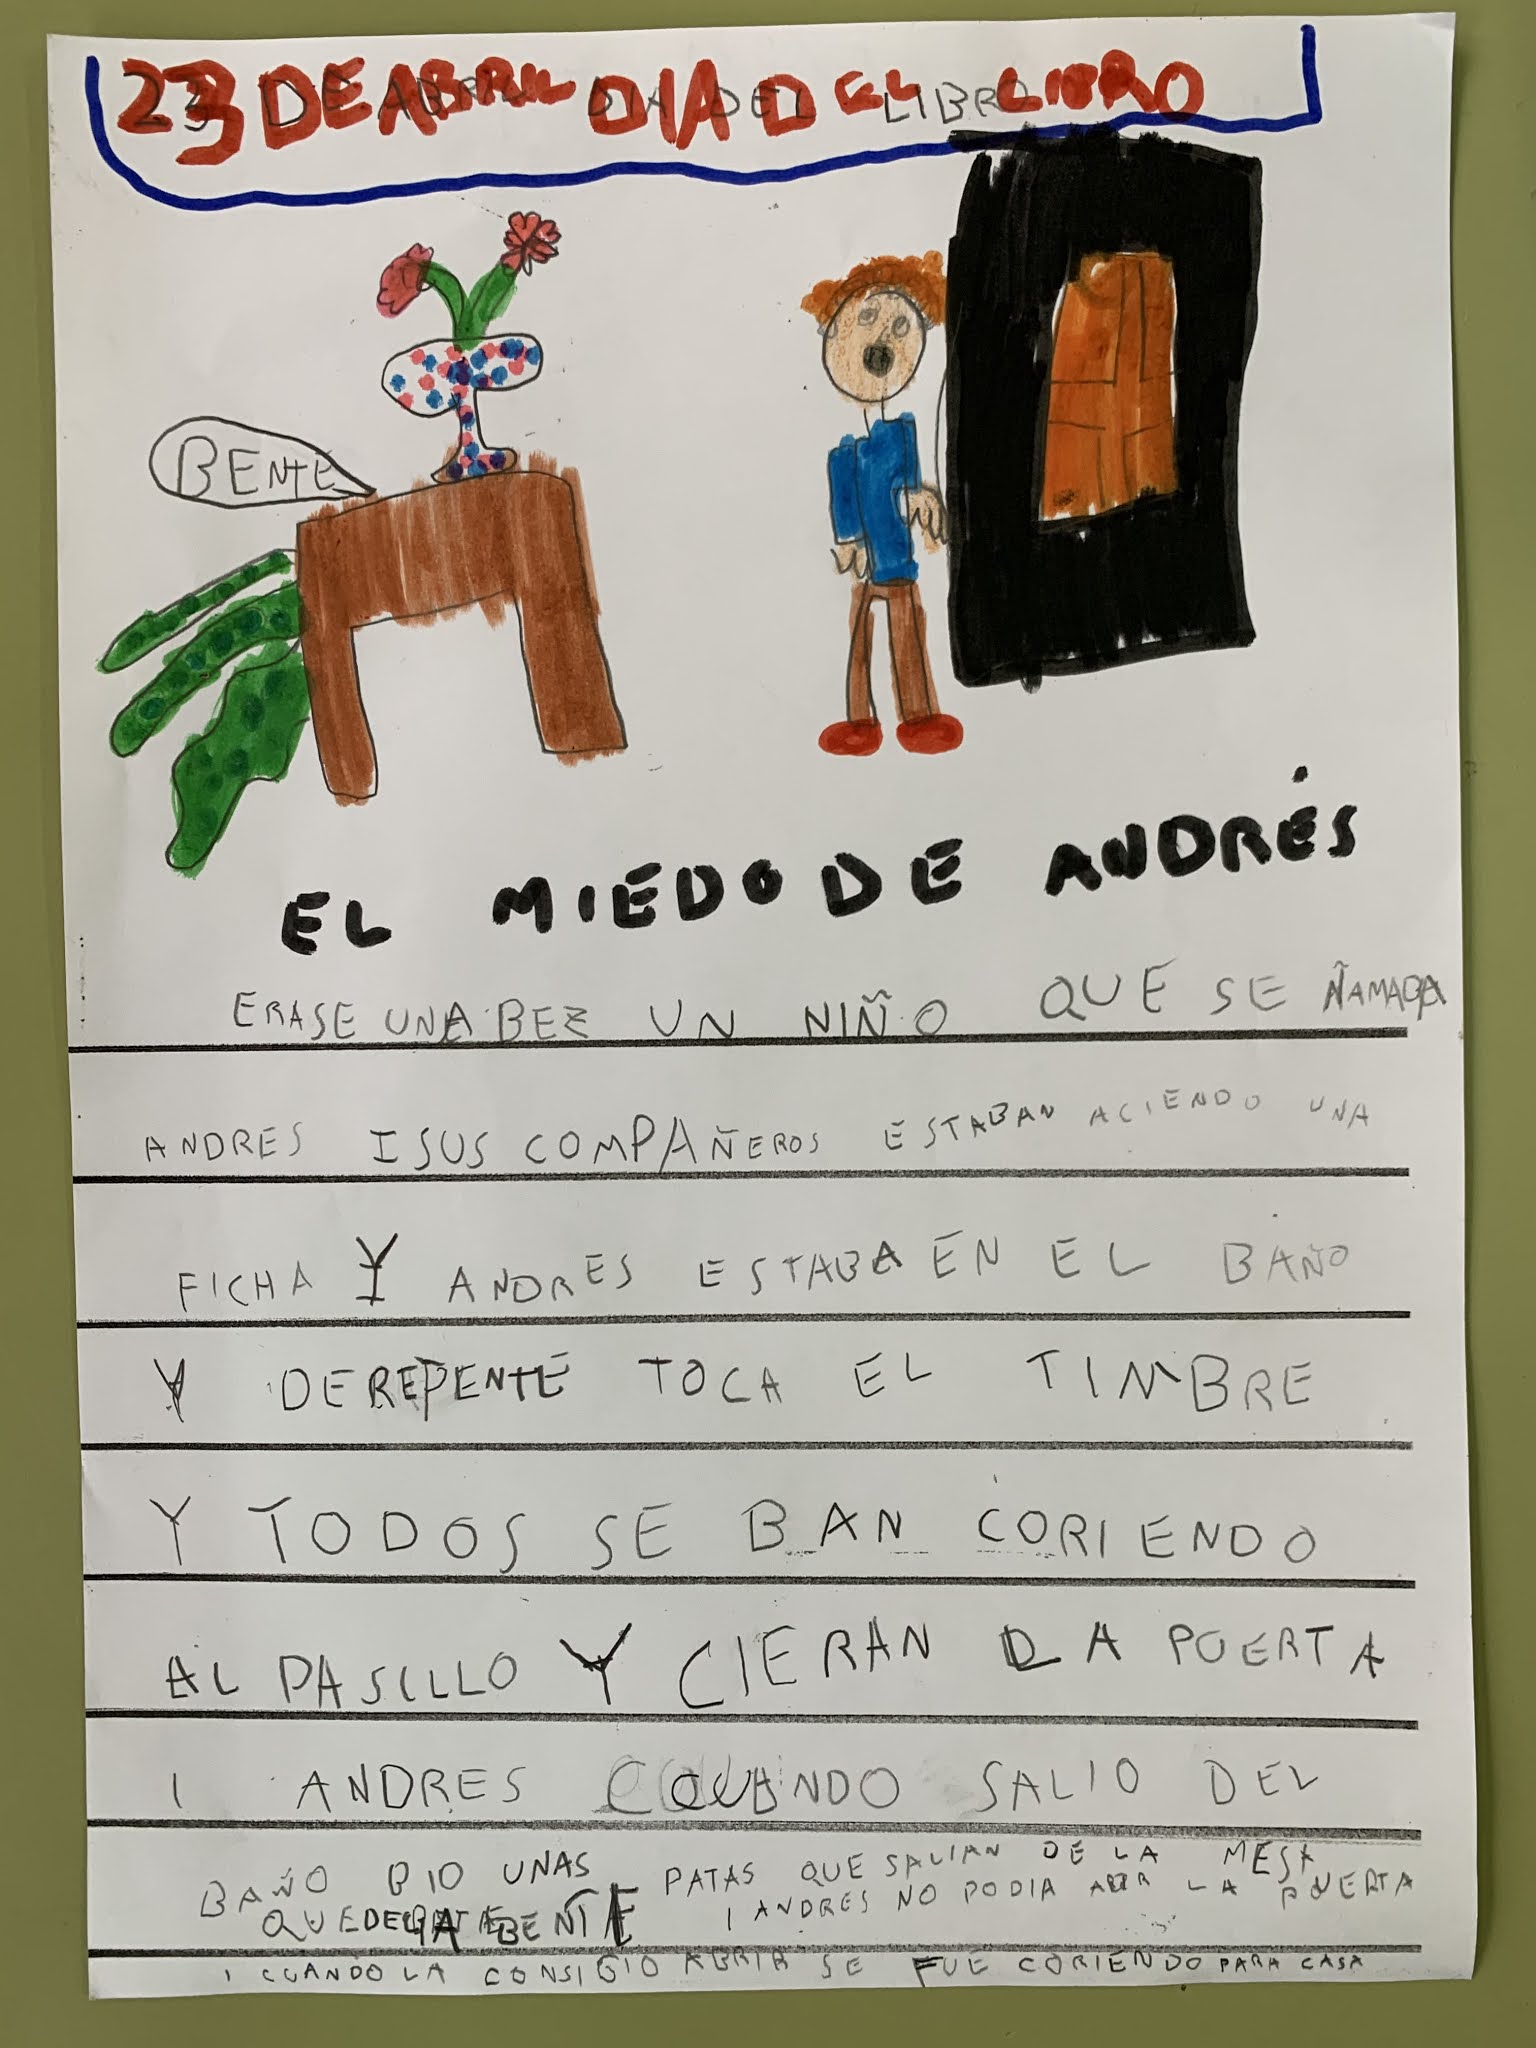 23 DE ABRIL DIA DEL LIBRO
BENTE
EL MIEDO DE ANDRÉS
ERASE UNA BEZ UN NIÑO QUE SE ÑAMABA
ANDRES I SUS COMPAÑEROS ESTABAN ACIENDO UNA
FICHA Y ANDRES ESTABA EN EL BAÑO
Y DEREPENTE TOCA EL TIMBRE
Y TODOS SE BAN CORIENDO
AL PASILLO Y CIERAN LA PUERTA
I ANDRES CUANDO SALIO DEL
BAÑO BIO UNAS PATAS QUE SALIAN DE LA MESA
QUE DECIA BENTE I ANDRES NO PODIA ABIR LA PUERTA
I CUANDO LA CONSIGIO ABRIR SE FUE CORIENDO PARA CASA